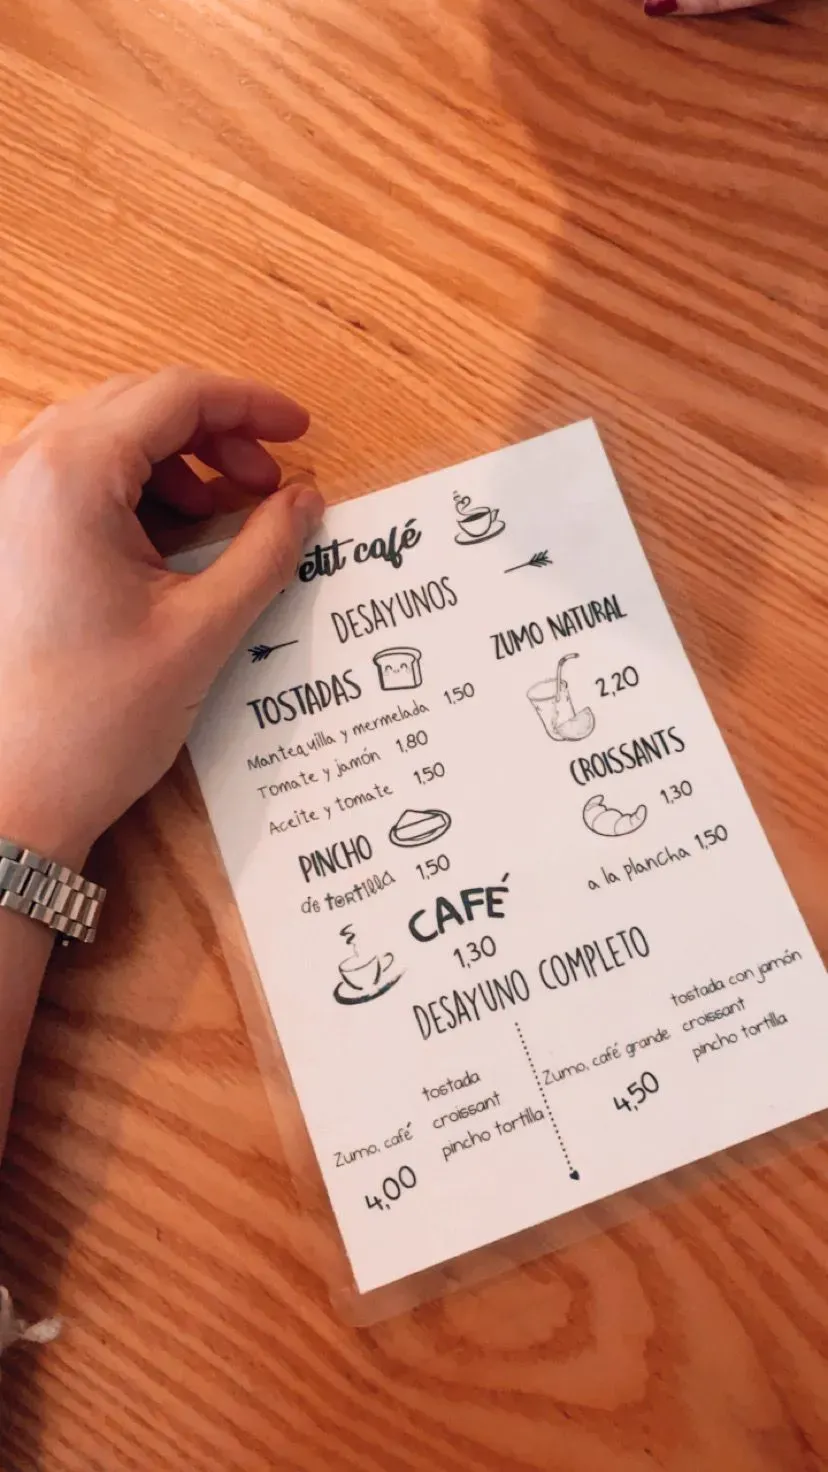 etit café
DESAYUNOS
TOSTADAS
Mantequilla y mermelada 1,50
Tomate y jamón 1,80
Aceite y tomate 1,50
PINCHO
de tortilla 1,50
CAFÉ
1,30
ZUMO NATURAL
2,20
CROISSANTS
1,30
a la plancha 1,50
DESAYUNO COMPLETO
tostada
Zumo, café croissant
pincho tortilla
4,00
tostada con jamón
Zumo, café grande croissant
pincho tortilla
4,50